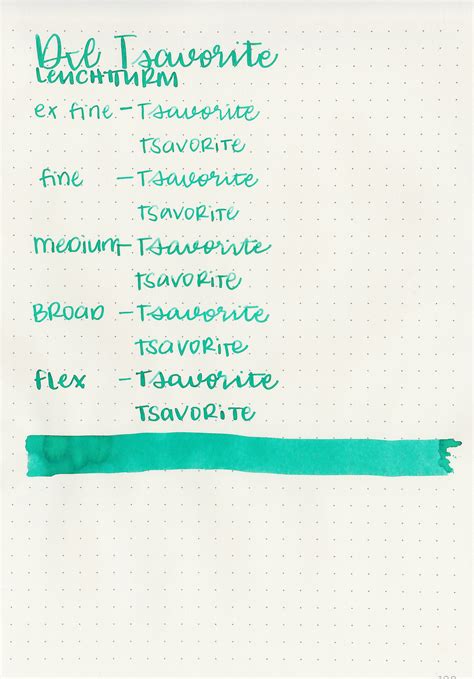 Dvl Tsavorite
LEUCHTTURM
ex fine – Tsavorite
TSAVORITE
fine – Tsavorite
TSAVORITE
MEDIUM – Tsavorite
TSAVORITE
BROAD – Tsavorite
TSAVORITE
FLEX – Tsavorite
TSAVORITE